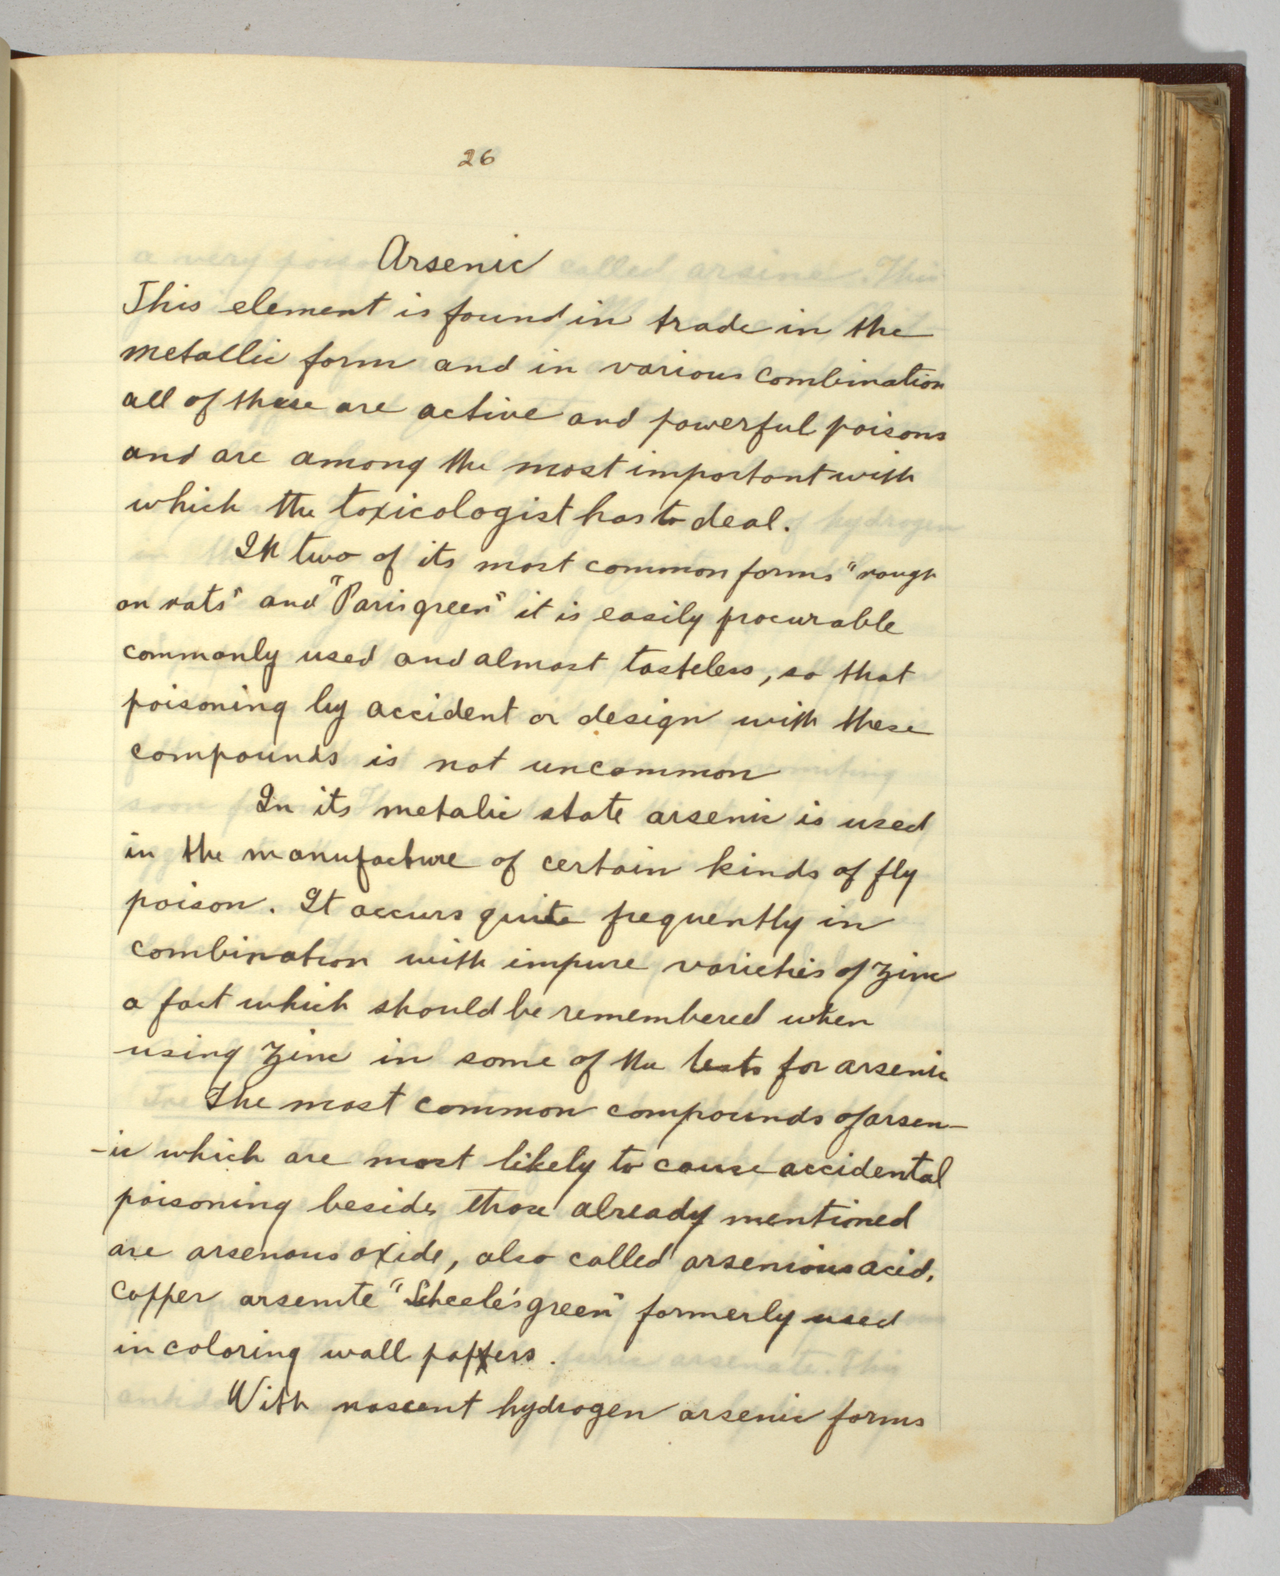 26
Arsenic
This element is found in trade in the
metallic form and in various combination
all of these are active and powerful poisons
and are among the most important with
which the toxicologist has to deal.
In two of its most common forms "rough
on rats" and "Paris green" it is easily procurable
commonly used and almost tasteless, so that
poisoning by accident or design with these
compounds is not uncommon
In its metalic state arsenic is used
in the manufacture of certain kinds of fly
poison. It occurs quite frequently in
combination with impure varieties of zinc
a fact which should be remembered when
using zinc in some of the tests for arsenic
The most common compounds of arsen-
-ic which are most likely to cause accidental
poisoning beside, those already mentioned
are arsenous oxide, also called arsenious acid,
Copper arsenite "Scheele's green" formerly used
in coloring wall papers.
With nascent hydrogen arsenic forms